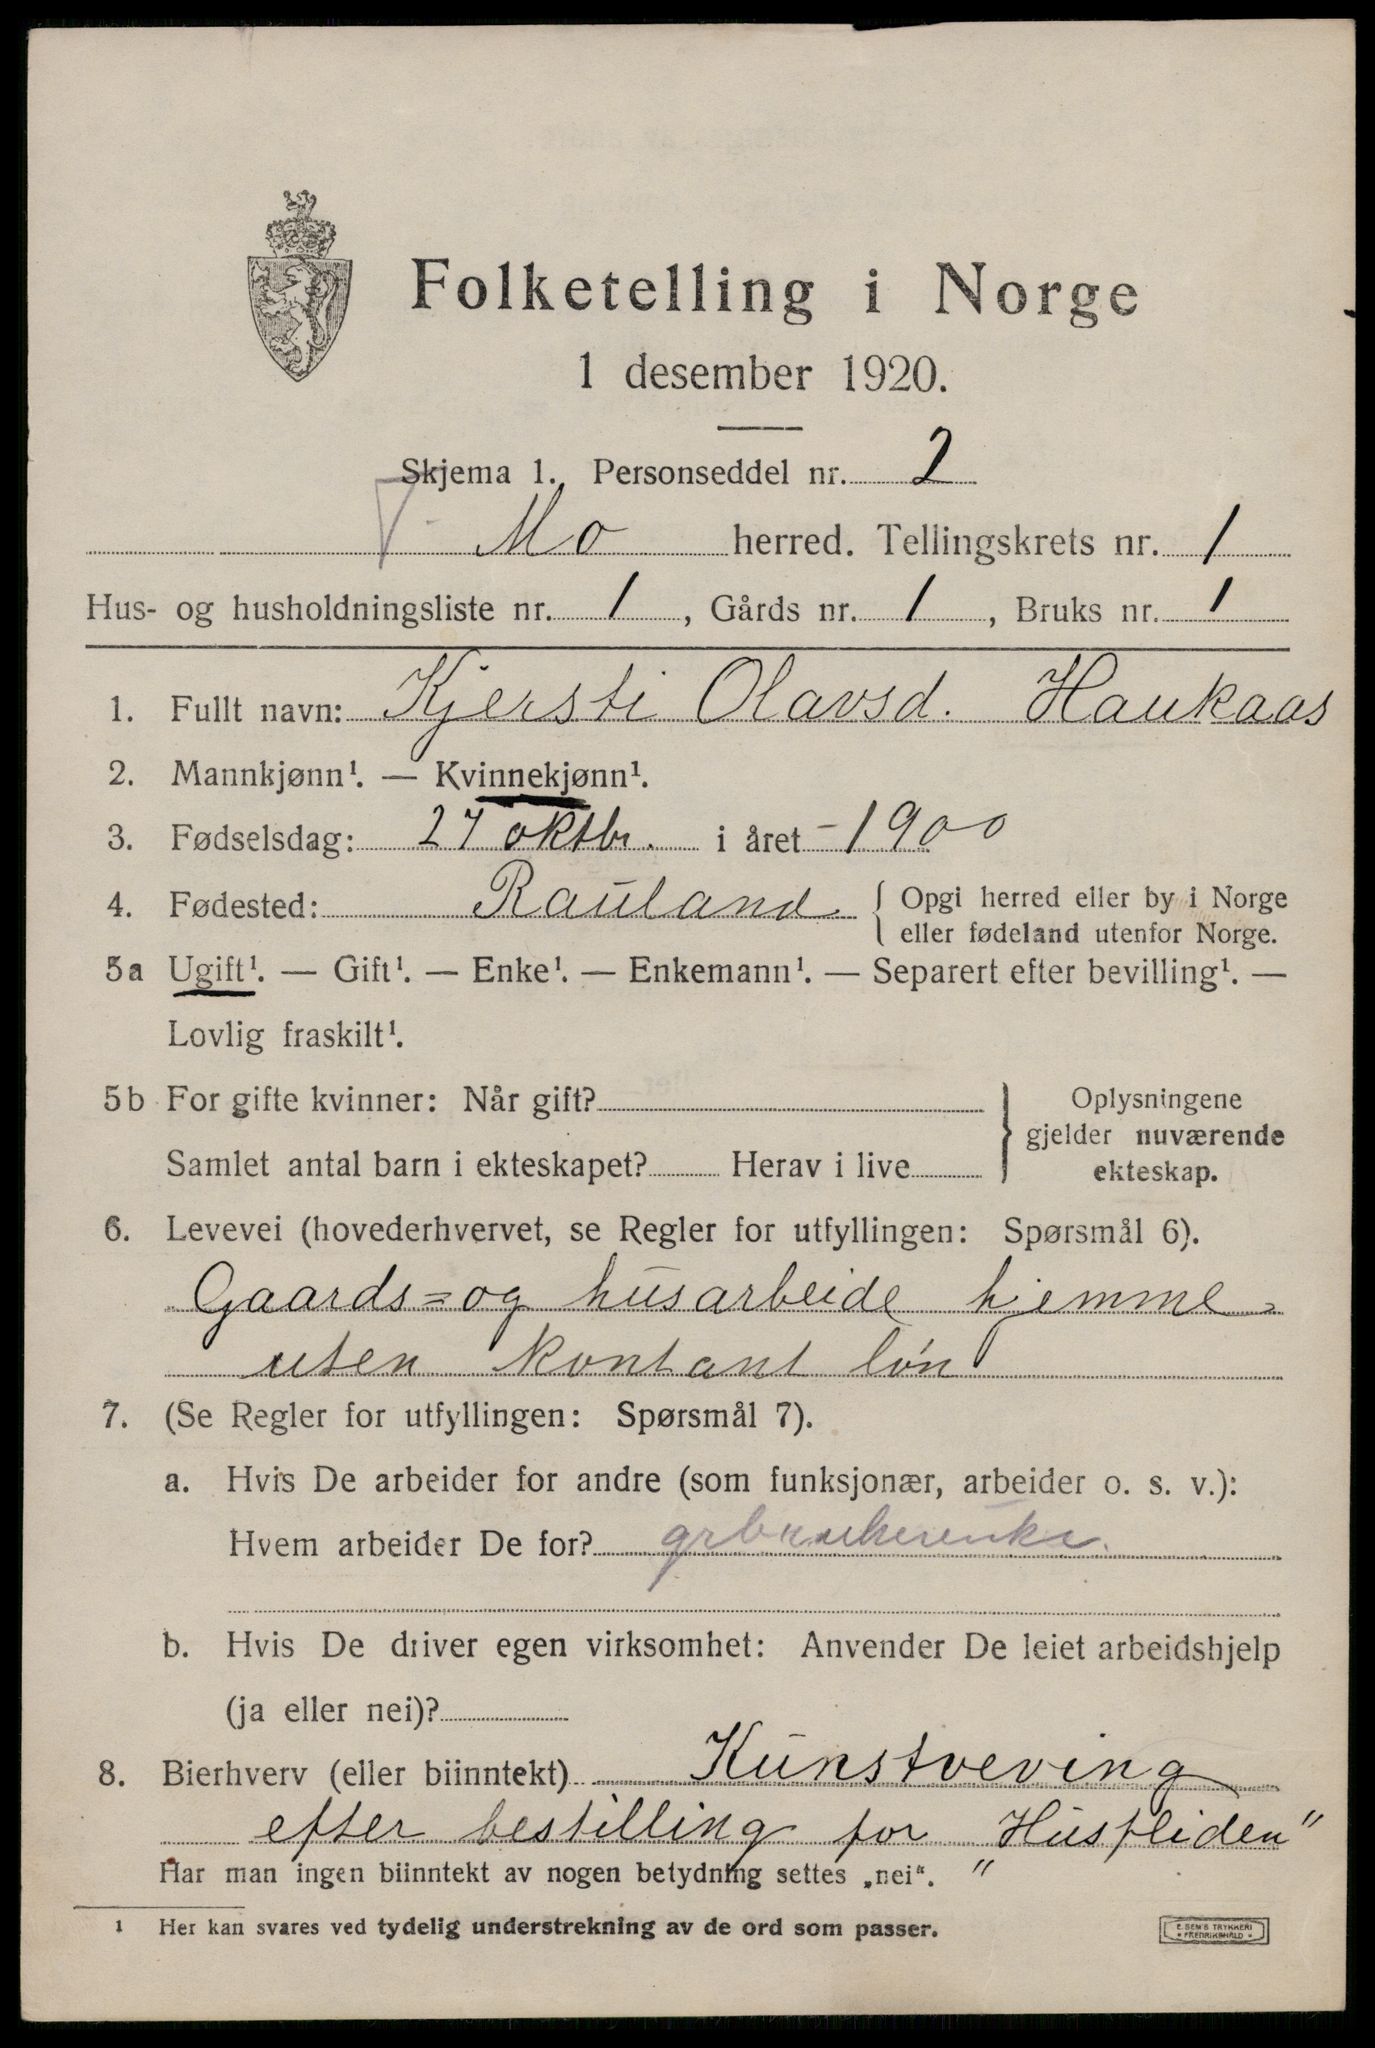 Folketelling i Norge
1 desember 1920.
Skjema 1. Personseddel nr. 2
Mo herred. Tellingskrets nr. 1
Hus- og husholdningsliste nr. 1, Gårds nr. 1, Bruks nr. 1
1. Fullt navn: Kjersti Olavsd. Haukaas
2. Mannkjønn¹. — Kvinnekjønn¹.
3. Fødselsdag: 27 oktbr. i året 1900
4. Fødested: Rauland { Opgi herred eller by i Norge
eller fødeland utenfor Norge.
5a Ugift¹. — Gift¹. — Enke¹. — Enkemann¹. — Separert efter bevilling¹. —
Lovlig fraskilt¹.
5b For gifte kvinner: Når gift?
Samlet antal barn i ekteskapet? Herav i live
} Oplysningene
gjelder nuværende
ekteskap.
6. Levevei (hovederhvervet, se Regler for utfyllingen: Spørsmål 6).
Gaards= og husarbeide hjemme
uten kontant løn
7. (Se Regler for utfyllingen: Spørsmål 7).
a. Hvis De arbeider for andre (som funksjonær, arbeider o. s. v.):
Hvem arbeider De for?
b. Hvis De driver egen virksomhet: Anvender De leiet arbeidshjelp
(ja eller nei)?
8. Bierhverv (eller biinntekt) Kunstveving
efter bestilling for "Husfliden"
Har man ingen biinntekt av nogen betydning settes „nei“.
¹ Her kan svares ved tydelig understrekning av de ord som passer.
E. SEM'S TRYKKERI
• FREDRIKSHALD •